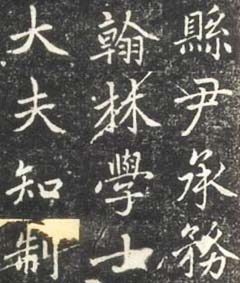 縣尹承務
翰林學士
大夫知制